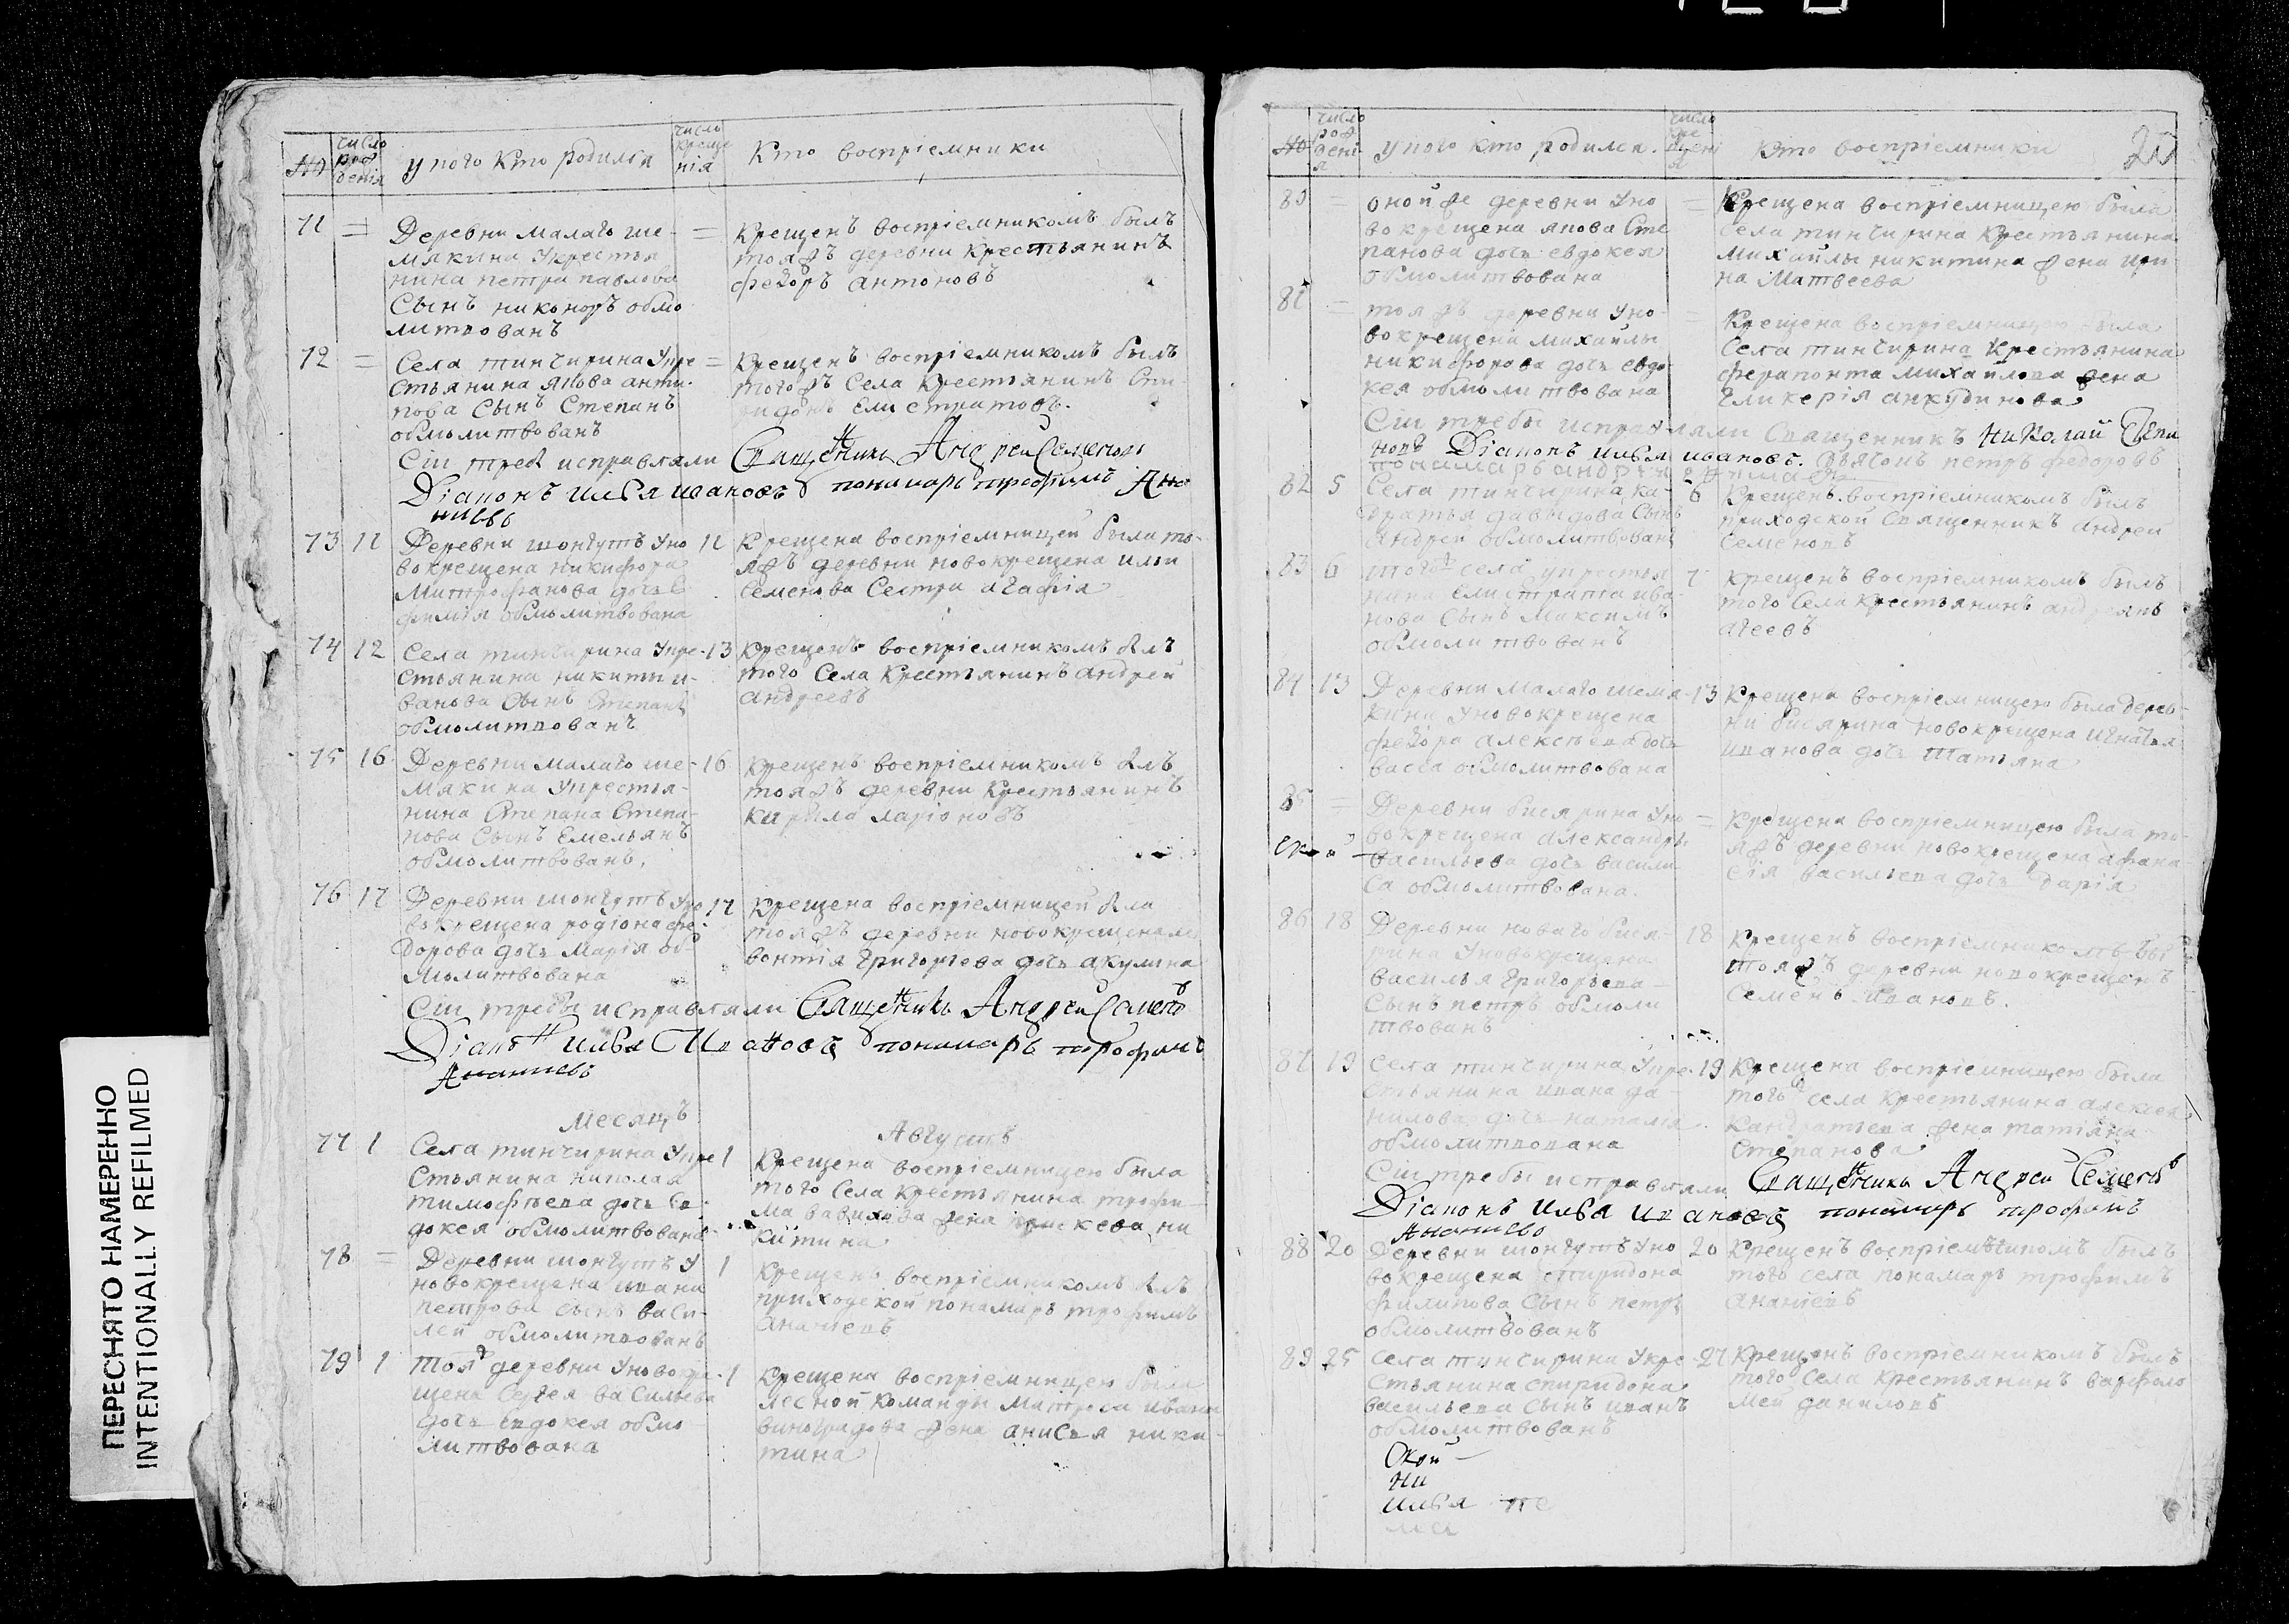 ПЕРЕСНЯТО НАМЕРЕННО
INTENTIONALLY REFILMED
№
число рождения
у кого кто родился
число крещенія
Кто воспріемники
71 =
Деревни малаго ше-
мякина Укрестья
нина петра павлова
Сынъ никоноръ обмо
литвованъ
= Крещенъ воспріемникомъ былъ
тояжъ деревни Крестьянинъ
федоръ антоновъ
72 =
Села тингирина Укре
стьянина якова анти
пова Сынъ Степанъ
обмолитвованъ
= Крещенъ воспріемникомъ былъ
тогожъ Села Крестьянинъ Спи
ридонъ Елистратовъ.
Сіи треб исправляли Священникъ Андрей Семеновъ
Діаконъ илья ивановъ понамарь трофимъ Ана
ниевъ
73 11
Деревни шонгутъ Уно
вокрещена никифора
Митрофанова дочь Е
фимія обмолитвована
11 Крещена воспріемницей была то-
яжъ деревни новокрещена ильи
Семенова Сестра агафіа
74 12
Села тингирина Укре-
стьянина никиты и-
ванова Сынъ Степанъ
обмолитвованъ
13 Крещенъ воспріемникомъ блъ
того Села Крестьянинъ андрей
андреевъ
75 16
Деревни малаго ше-
мякина Укрестья-
нина Степана Степа-
нова Сынъ Емельянъ
обмолитвованъ.
16 Крещенъ воспріемникомъ блъ
тояжъ деревни Крестьянинъ
кирила ларіоновъ
76 17
Деревни шонгутъ Уно
вокрещена родіона фе-
Дорова дочь Марія об
молитвована
17 Крещена воспріемницей бла
тояжъ деревни новокрещена ле
вонтія Григорьева дочь акулина
Сіи требы исправляли Священникъ Андрей Семеновъ
Діаконъ илья Ивановъ понамарь трофимъ
Ананиевъ
Месяцъ Августъ
77 1
Села тингирина Укре
Стьянина николая
тимофѣева дочь Ев
докея обмолитвована
1 Крещена воспріемницею была
того Села Крестьянина трофи-
ма вавилова жена прискева ни
китина
78 =
Деревни шонгутъ У
новокрещена ивана
петрова сынъ васи-
лей обмолитвованъ
1 Крещенъ воспріемникомъ блъ
приходской понамарь трофимъ
ананіевъ
79 1
тояж деревни Уновокре
щена Сергея васильева
дочь Евдокея обмо
литвована
1 Крещена воспріемницею была
лесной команды Матроса ивана
виноградова жена анисья ники-
тина
№
число рождения
у кого кто родился.
число крещения
Кто воспріемники
80 =
оной же деревни Уно
вокрещена якова Сте
панова дочь евдокея
обмолитвована
= Крещена воспріемницею была
Села тингирина Крестьянина
Михайлы никитина жена ири
на Матвеева
81 =
тояжъ деревни Уно-
вокрещена михайлы
никифорова дочь евдо
кея обмолитвована
= Крещена воспріемницею была
Села тингирина Крестьянина
ферапонта михайлова жена
Гликерія анкудинова
Сіи требы исправляли Священникъ николай
Діаконъ илья ивановъ. дьячокъ петръ федоровъ
понамарь андрей
82 5
Села тингирина ка-
дратья давыдова Сынъ
андрей обмолитвованъ
6 Крещенъ воспріемникомъ былъ
приходской Священникъ андреи
Семеновъ
83 6
тогож села укрестья
нина Елистрата ива-
нова Сынъ Максимъ
обмолитвованъ
7 Крещенъ воспріемникомъ былъ
того Села Крестьянинъ андреянъ
агеевъ
84 13
Деревни малаго шемя-
кина Уновокрещена
федора алексѣева дочь
васса обмолитвована
13 Крещена воспріемницею была дерев-
ни бисярина новокрещена игнатья
иванова дочь татьяна
85 =
Деревни бисярина Уно
вокрещена александры
васильева дочь васили
са обмолитвована.
= Крещена воспріемницею была то-
яжъ деревни новокрещена афана
сія васильева дочь дарія
86 18
Деревни новаго бися-
рина Уновокрещена
василья григорьева
Сынъ петръ обмоли
твованъ
18 Крещенъ воспріемникомъ бы
тояжъ деревни новокрещенъ
Семенъ ивановъ.
87 19
Села тингирина Укре-
стьянина ивана да-
нилова дочь наталія
обмолитвована
19 Крещена воспріемницею была
тогож села Крестьянина алексея
Кандратьева жена татіана
Степанова
Сіи требы исправляли Священникъ Андрей Семеновъ
Діаконъ илья ивановъ понамарь трофимъ
Ананиевъ
88 20
Деревни шонгутъ Уно
вокрещена спиридона
филипова Сынъ петръ
обмолитвованъ
20 Крещенъ воспріемникомъ былъ
того села понамарь трофимъ
ананіевъ
89 25
Села тингирина Укре
стьянина спиридона
васильева Сынъ иванъ
обмолитвованъ
27 Крещенъ воспріемникомъ былъ
того Села Крестьянинъ варфоло
мей даниловъ
Окой
ни
илья